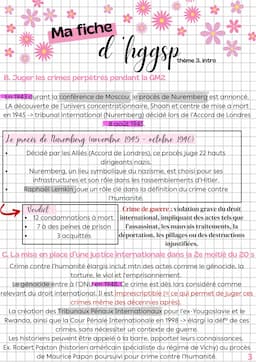 Ma fiche
d'hggsp
thème 3, intro
B. Juger les crimes perpétrés pendant la GM2
En 1943 durant la conférence de Moscou, le procès de Nuremberg est annoncé.
LA découverte de l'univers concentrationnaire, Shaon et centre de mise a mort
en 1945 → tribunal International (Nuremberg) décidé lors de l'Accord de Londres
8 août 1945
Le procès de Nuremberg (novembre 1945 - octobre 1946)
Décidé par les Alliés (Accord de Londres), ce procès juge 22 hauts
dirigeants nazis.
Nuremberg, un lieu symbolique du nazisme, est choisi pour ses
infrastructures et son rôle dans les rassemblements d'Hitler.
Raphaël Lemkin joue un rôle clé dans la définition du crime contre
l'humanité.
Verdict
12 condamnations à mort
7 à des peines de prison
3 acquittés
Crime de guerre : violation grave du droit
international, impliquant des actes tels que
l'assassinat, les mauvais traitements, la
déportation, les pillages ou des destructions
injustifiées.
C. La mise en place d'une justice internationale dans la 2e moitié du 20 s
Crime contre l'humanité élargis inclut mtn des actes comme le génocide, la
torture, le viol et l'emprisonnement.
Le génocide entre à l'ONU en 1948. Ce crime est dès lors considéré comme
relevant du droit international. Il est imprescriptible (= ce qui permet de juger ces
crimes même des décennies après).
La création des Tribunaux Pénaux Internationaux pour l'ex-Yougoslavie et le
Rwanda, ainsi que la Cour Pénale Internationale en 1998 → élargi la déf° de ces
crimes, sans nécessiter un contexte de guerre.
Les historiens peuvent être appelé à la barre, apporter leurs connaissances.
Ex. Robert Paxton (historien américain spécialiste du régime de Vichy) au procès
de Maurice Papon poursuivi pour crime contre l'humanité.
3